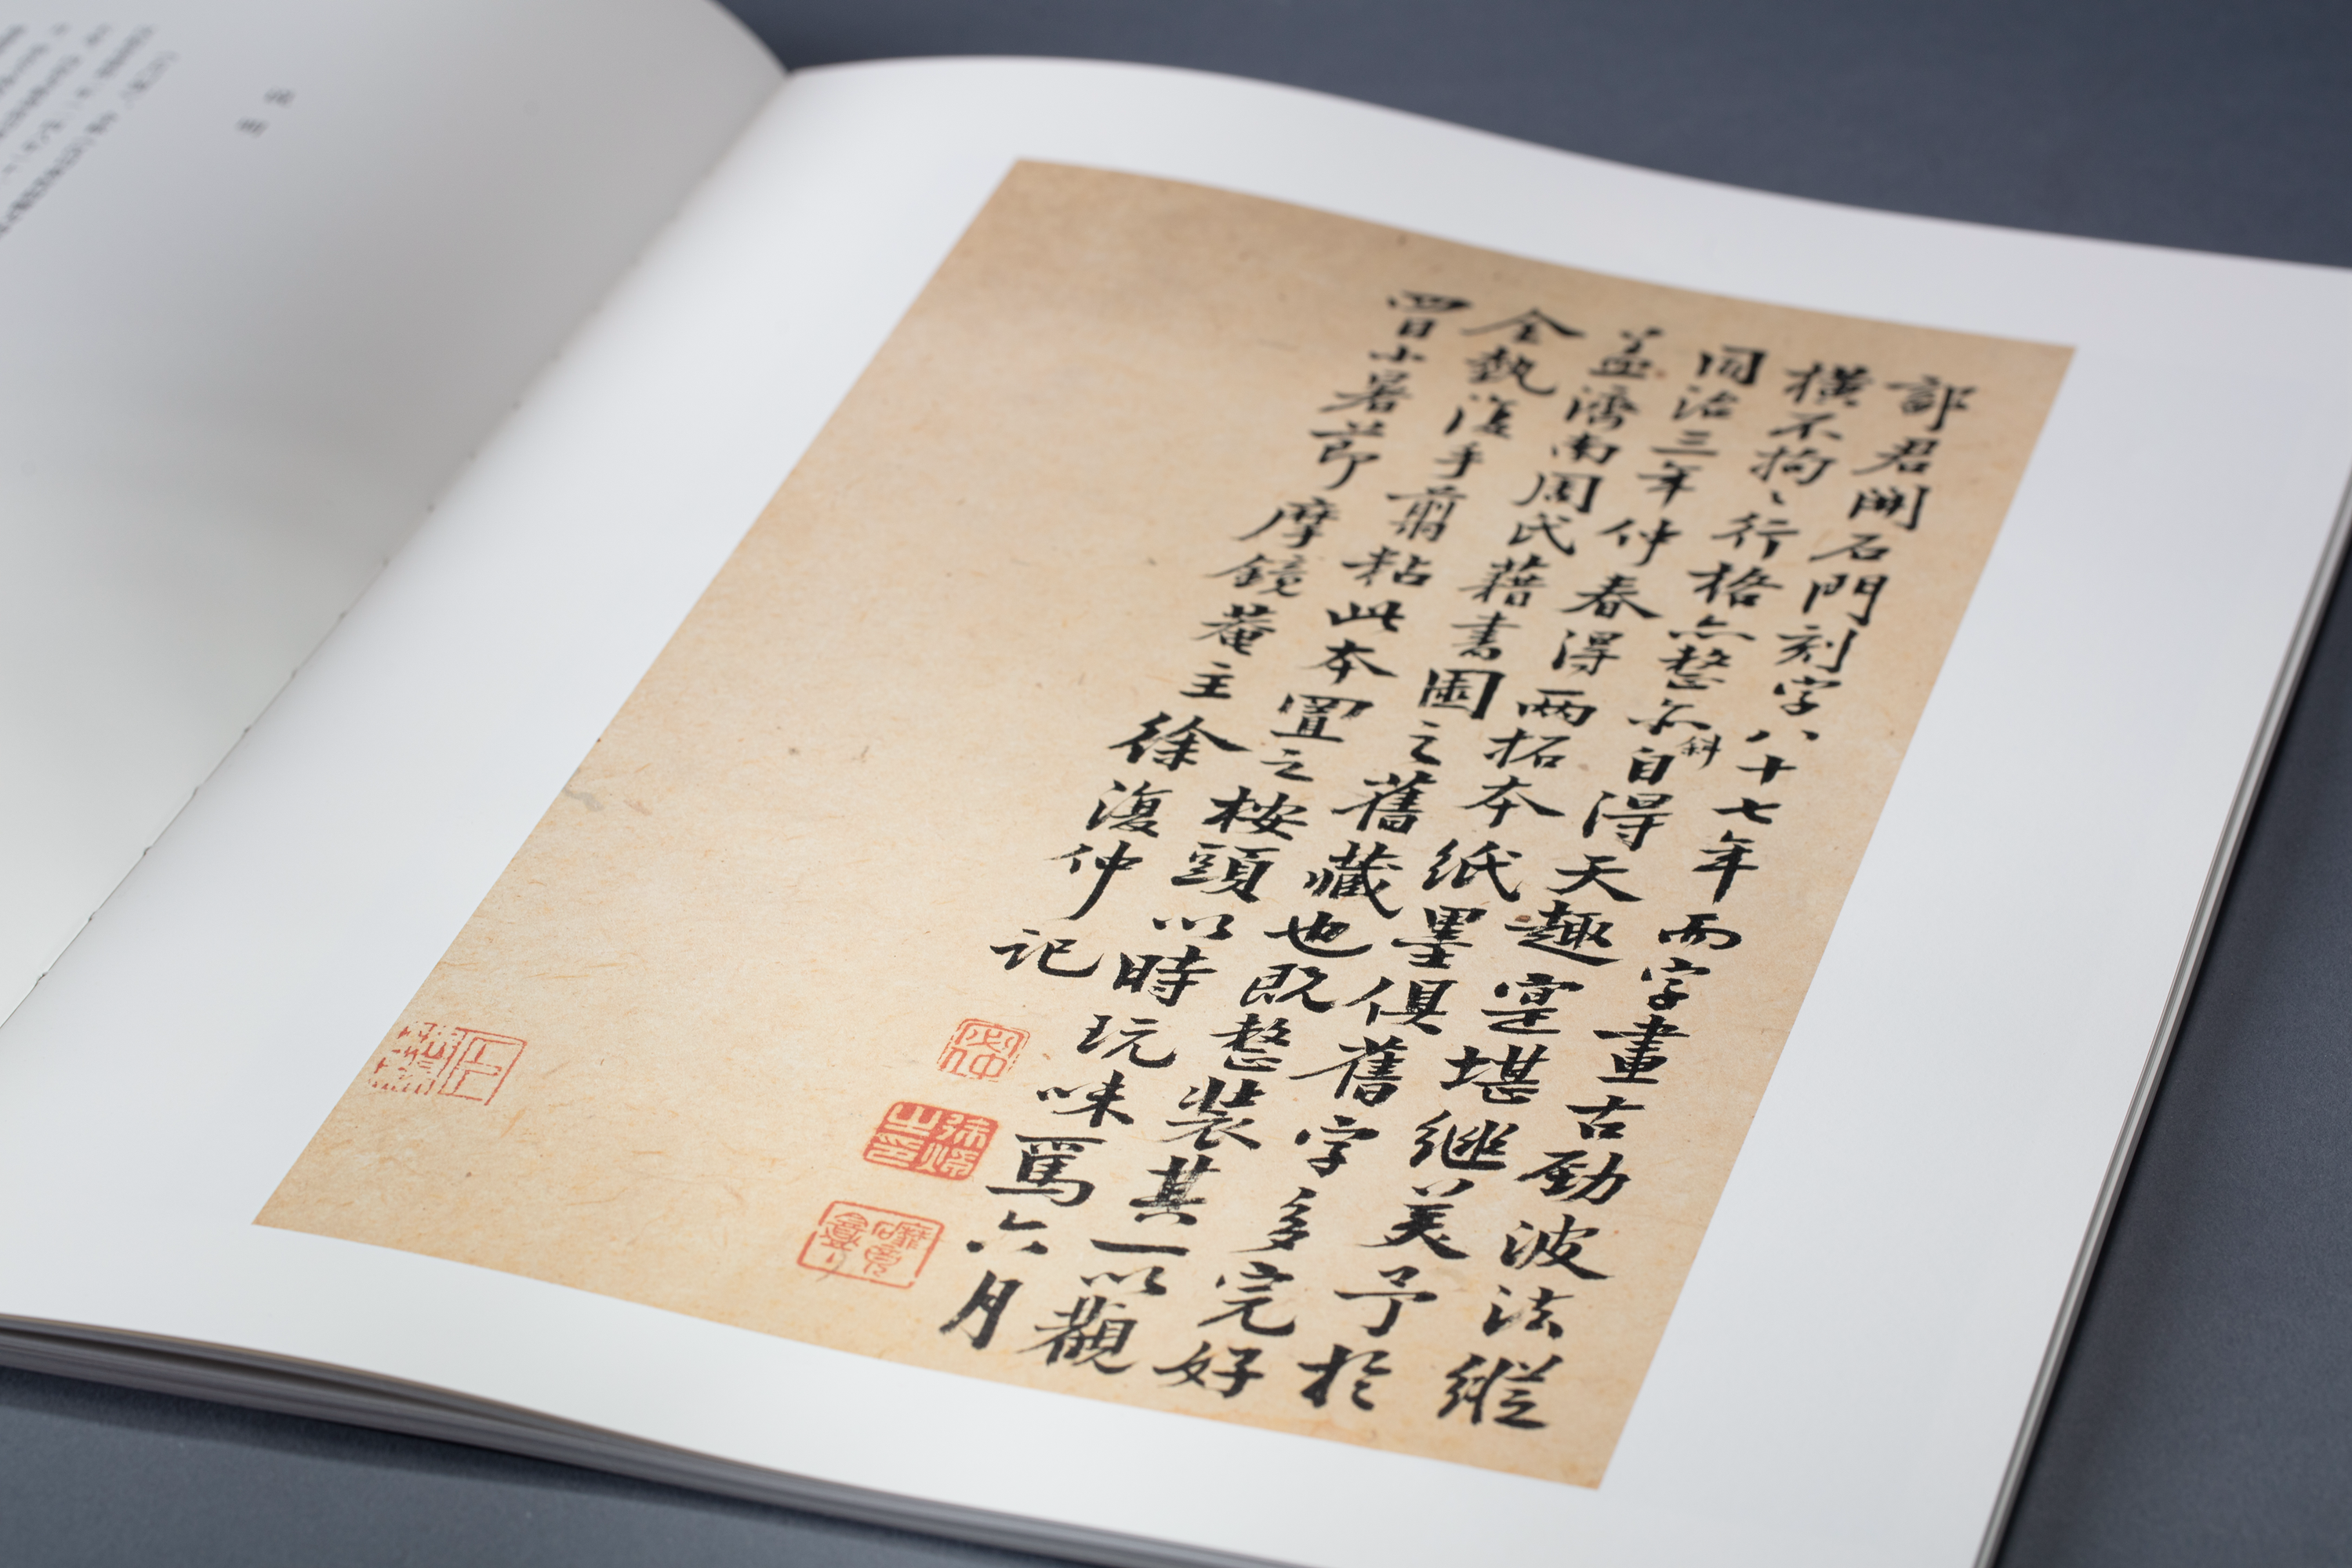 鄐君開石門刻字八十七年而字畫古勁波法縱
橫不拘〻行格亦整亦斜自得天趣寔堪繼美予於
同治三年仲春得兩拓本紙墨俱舊字多完好
盖濟南周氏藉書園之舊藏也既整裝其一以觀
全埶復手翦粘此本置之桉頭以時玩味焉六月
四日小暑節摩鏡菴主徐復仲記